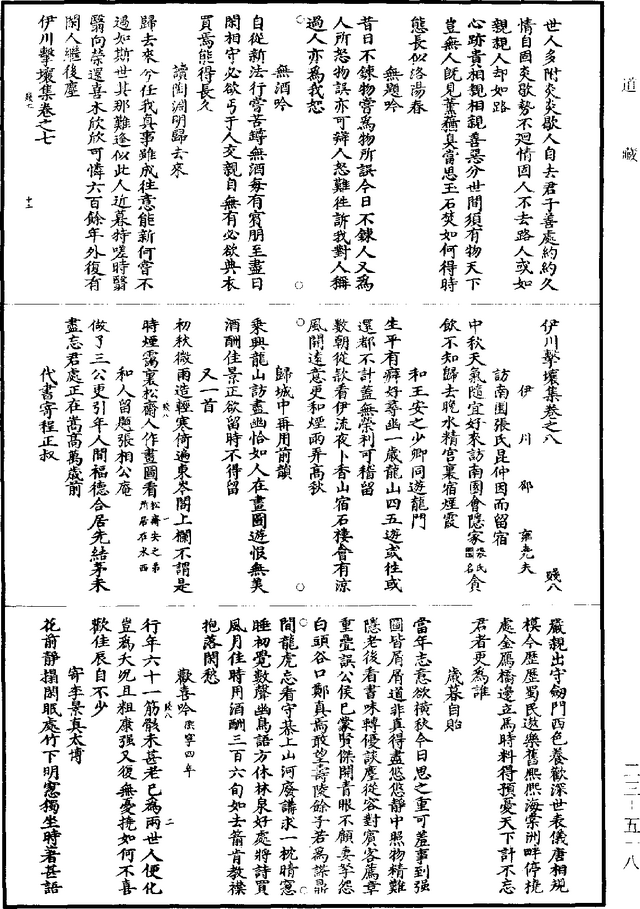 道藏
世人多附炎炎歇人自去君子善處約約久
情自固炎歇勢不廻情因人不去路人或如
親親人却如路
心跡貴相親相親善惡分世間須有物天下
豈無人既見薰蕕臭當思玉石焚如何得時
態長似洛陽春
無題吟
昔日不鍊物嘗為物所誤今日不鍊人又為
人所怒物誤亦可辯人怒難往訴我對人稱
過人亦為我恕
無酒吟
自從新法行嘗苦罇無酒每有賓朋至盡日
閑相守必欲丐于人交親自無有必欲典衣
買焉能得長久
讀陶淵明歸去來
歸去來兮任我真事雖成往意能新何嘗不
過如斯世其那難逢似此人近暮特嗟時翳
翳向榮還喜木欣欣可憐六百餘年外復有
閑人繼後塵
伊川擊壤集卷之七
伊川擊壤集卷之八 賤八
伊川邵雍堯夫
訪南園張氏昆仲因而留宿
中秋天氣隨宜好來訪南園會隱家張氏園名貪
飲不知歸去晚水精宮裏宿煙霞
和王安之少卿同遊龍門
生平有癖好尋幽一歲龍山四五遊或往或
還都不計盡無榮利可稽留
數朝從款看伊流夜卜香山宿石樓會有涼
風開遠意更和煙雨弄高秋
歸城中再用前韻
乘興龍山訪盡幽恰如人在畫圖遊恨無美
酒酬佳景正欲留時不得留
又一首
初秋微雨造輕寒倚遍東岑閣上欄不謂是
時煙靄裏松齋人作畫圖看松齋安之弟所居在水西
和人留題張相公庵
做了三公更引年人間福德合居先結茅未
盡忘君處正在嵩高萬歲前
代書寄程正叔
嚴親出守劒門西色養歡深世表儀唐相規
模今歷歷蜀民遨樂舊熙熙海棠洲畔停橈
處金鴈橋邊立馬時料得預憂天下計不忘
君者更為誰
歲暮自貽
當年志意欲橫秋今日思之重可羞事到強
圖皆屑屑道非真得盡悠悠靜中照物精難
隱老後看書味轉優談麈從容對賓客薦章
重疊誤公侯已蒙賢傑開青眼不願妻孥怨
白頭谷口鄭真焉敢望壽陵餘子若為謀鼎
間龍虎忘看守棊上山河廢講求一枕晴窻
睡初覺數聲幽鳥語方休林泉好處將詩買
風月佳時用酒酬三百六旬如去箭肯教襟
抱落閑愁
歡喜吟熙寧四年
行年六十一筋骸未甚老已為兩世人便化
豈為夭況且粗康强又復無憂撓如何不喜
歡佳辰自不少
寄李景真太博
花前靜榻閑眠處竹下明窻獨坐時著甚語
二三—五一八